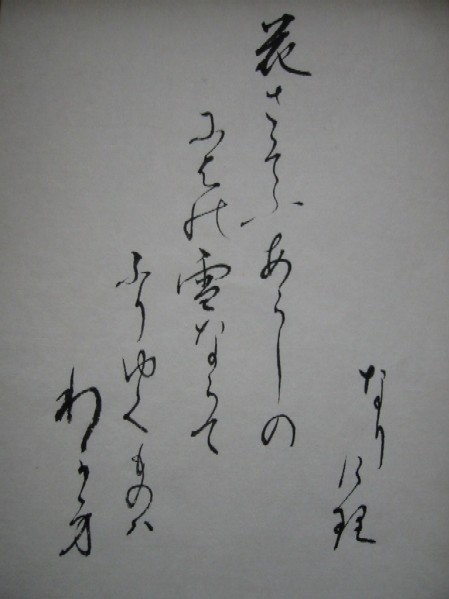 花さそふあらしの
にはの雪ならて
ふりゆくものハ
わか身
なりけ理